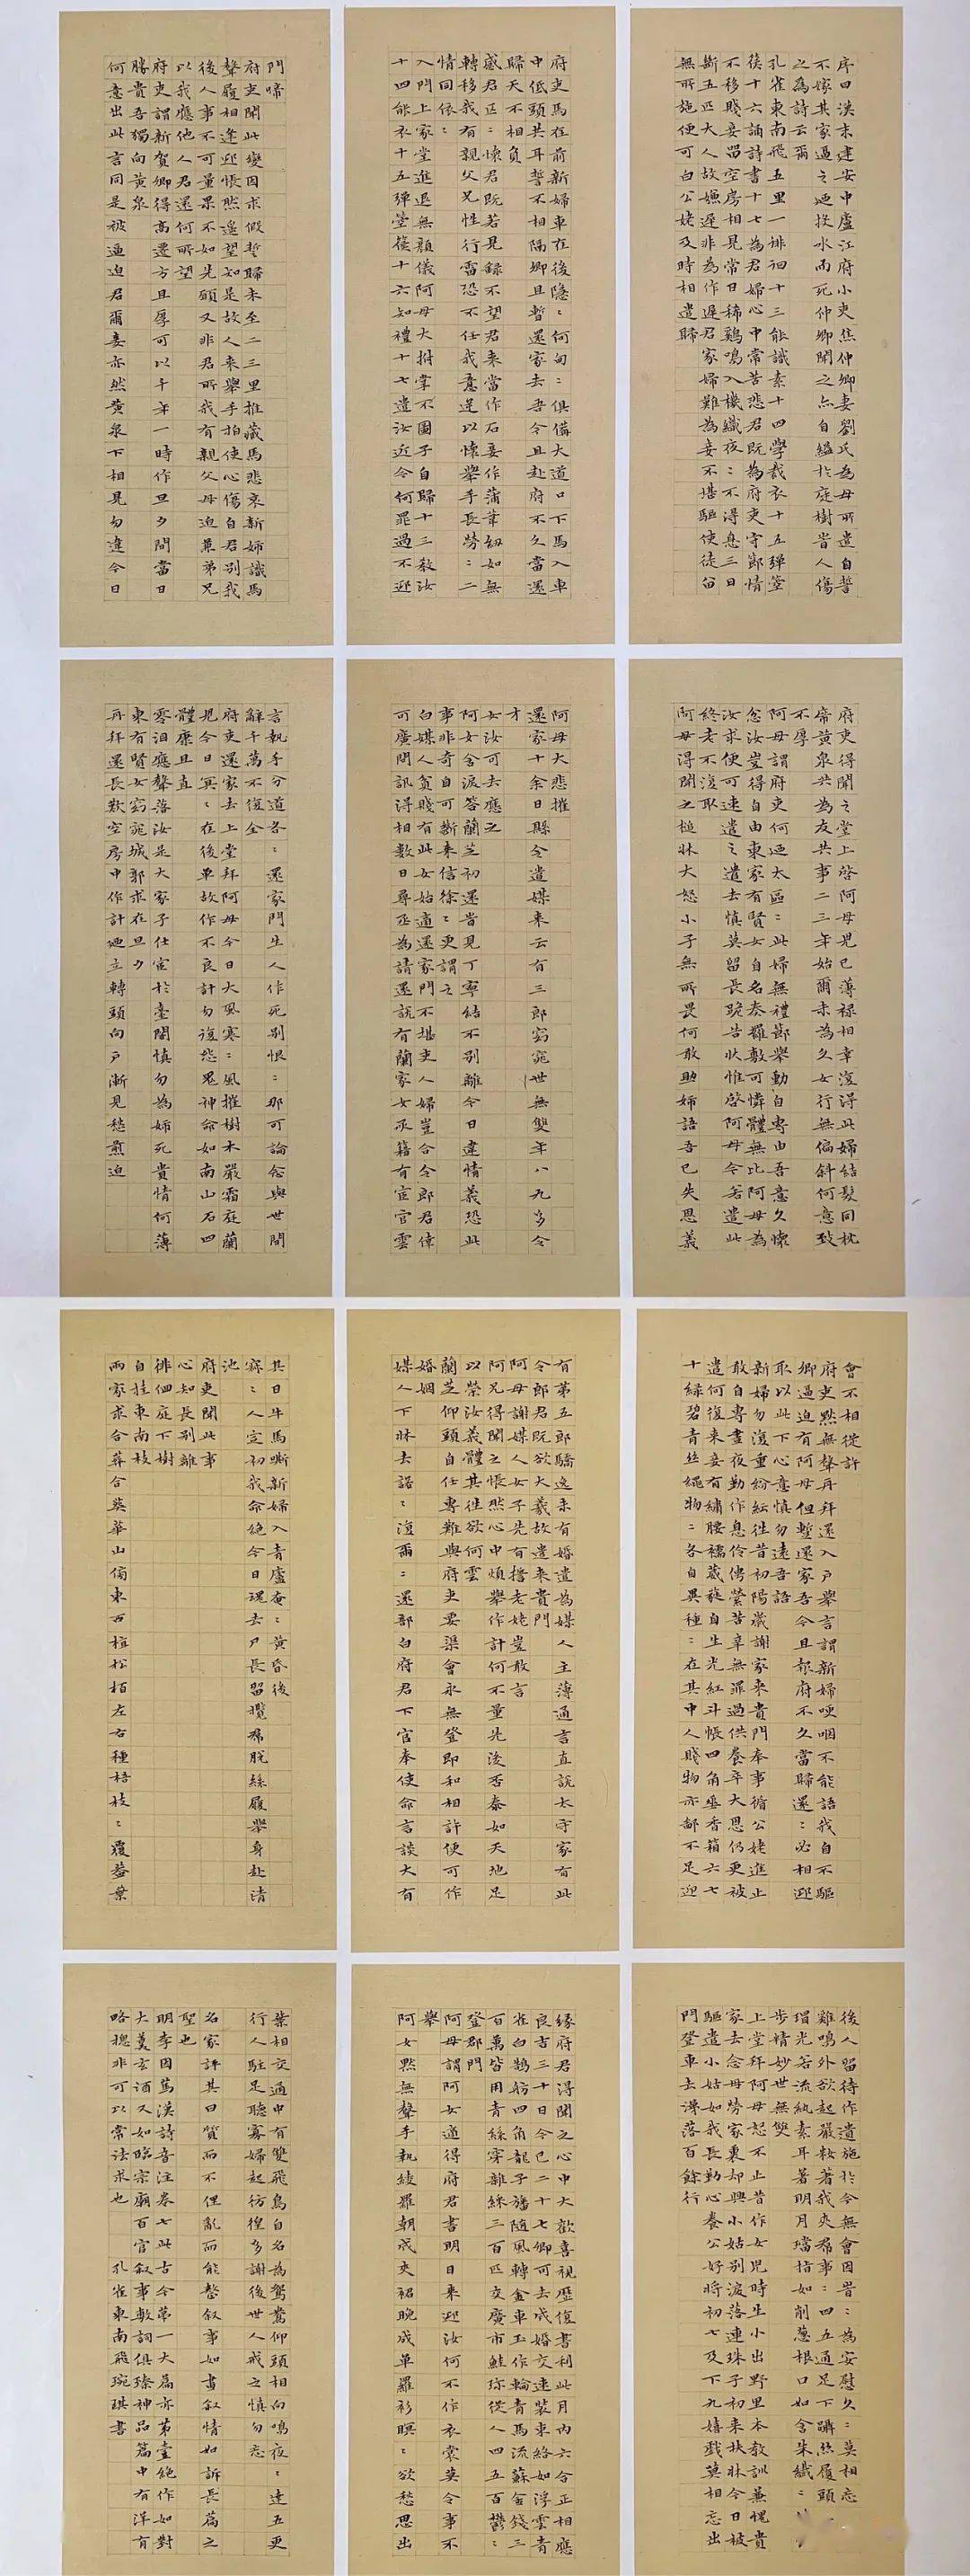 序曰漢末建安中廬江府小吏焦仲卿妻劉氏為母所遣自誓
不嫁其家逼之廼投水而死仲卿聞之亦自縊於庭樹昔人傷
之為詩云爾
孔雀東南飛五里一徘徊十三能識素十四學裁衣十五彈箜
篌十六誦詩書十七為君婦心中常苦悲君既為府吏守節情
不移賤妾留空房相見常日稀鷄鳴入機織夜:不得息三日
斷五匹大人故嫌遲非為作遲君家婦難為妾不堪驅使徒留
無所施便可白公姥及時相遣歸
府吏得聞之堂上啓阿母兒已薄祿相幸復得此婦結髮同枕
席黃泉共為友共事二三年始爾未為久女行無偏斜何意致
不厚
阿母謂府吏何廼太區:此婦無禮節舉動自專由吾意久懷
忿汝豈得自由東家有賢女自名秦羅敷可憐體無比阿母為
汝求便可速遣之遣去慎莫留長跪告伏惟啓阿母今若遣此
終老不復取
阿母得聞之槌牀大怒小子無所畏何敢助婦語吾已失恩義
會不相從許
府吏默無聲再拜還入户舉言謂新婦哽咽不能語我自不驅
卿逼迫有阿母但暫還家吾今且報府不久當歸還:必相迎
取以此下心意慎勿遠吾語
新婦勿復重紛紜往昔初陽歲謝家来貴門奉事循公姥進止
敢自專晝夜勤作息伶俜縈苦辛無罪過供養卒大恩仍更被
遣何復来妾有繡腰襦葳蕤自生光紅斗帳四角垂香箱六七
十綠碧青絲繩物:各自異種:在其中人賤物亦鄙不足迎
後人留待作遺施於今無會因昔:為安慰久:莫相忘
雞鳴外欲起嚴妝著我夾裙事:四五通足下躡絲履頭
瑁光若流紈素耳著明月璫指如削葱根口如含朱織:
步精妙世無雙
上堂拜阿母恕不止昔作女兒時生小出野里本教訓兼愧貴
家去念母勞家裏却興小姑別淚落連珠子初来扶牀今日被
驅遣小姑如我長勤心養公好將初七及下九嬉戲莫相忘出
門登車去涕落百餘行
府吏馬在前新婦車在後隱:何甸:俱備大道口下馬入車
中低頭共耳誓不相隔卿且暫還家去吾今且赴府不久當還
歸天不相負
感君區:懷君既若見録不望君来當作石妾作蒲葦紉如無
轉移我有親父兄性行雷恐不任我意逆以懷舉手長勞:二
情同依:
入門上家堂進退無顏儀阿母大拊掌不圖子自歸十三教汝
十四能衣十五彈箜篌十六知禮十七遣汝近今何罪過不迎
阿母大悲摧
還家十余日縣令遣媒来云有三郎窈窕世無雙年八九多令
才
女汝可去應之
阿女含淚答蘭芝初還昔見丁寧結不別離今日違情義恐此
事非奇自可斷来信徐:更謂之
白媒人貧賤有此女始適還家門不堪吏人婦豈合令郎君倖
可廣問訊得相數日尋丞為請還説有蘭家女承籍有宦官雲
有第五郎驕逸未有婚遣為媒人主薄通言直説太守家有此
令郎君既欲大義故遣来貴門
阿母謝媒人女子先有擔老姥豈敢言
阿兄得聞之悵然心中煩舉作計何不量先後否泰如天地足
以榮汝義體其徃欲何雲
蘭芝仰頭自任專難與府吏要渠會永無登即和相許便可作
婚姻
媒人下牀去諾:復爾:還部白府君下官奉使命言談大有
緣府君得聞之心中大歡喜視歷復書利此月內六合正相應
良吉三十日今已二十七卿可去成婚交速裝束絡如浮雲青
雀白鵠舫四角龍子旛随風轉金車玉作輪青馬流蘇金錢三
百萬皆用青絲穿雜綵三百匹交廣市鮭珍從人四五百鬱:
登郡門
阿母謂阿女適得府君書明日来迎汝何不作衣裳莫令事不
舉
阿女默無聲手執綾羅朝成夾裙晚成單羅衫暝:欲愁思出
門啼
府吏聞此變因求假暫歸未至二三里摧藏馬悲哀新婦識馬
聲履相逢迎悵然遥望知是故人来舉手拍使心傷自君別我
後人事不可量果不如先願又非君所我有親父母迫兼弟兄
以我應他人君還何所望
府吏謂新賀卿得高遷方且厚可以千年一時作旦夕間當日
勝貴吾獨向黃泉
何意出此言同是被逼迫君爾妾亦然黃泉下相見勿違今日
言執手分道各:還家門生人作死別恨:那可論念與世間
辭千萬不復全
府吏還家去上堂拜阿母今日大風寒:風摧樹木嚴霜庭蘭
兒今日冥:在後單故作不良計勿復怨鬼神命如南山石四
體康且直
零泪應聲落汝是大家子仕宦於臺閣慎勿為婦死貴情何薄
東有賢女窈窕城郭求在旦夕
再拜還長歎空房中作計廼立轉頭向户漸見愁煎迫
其日牛馬嘶新婦入青廬奄:黃昏後
寐:人定初我命絶今日魂去尸長留攬裙脫絲履舉身赴清
池
府吏聞此事
心知長別離
徘徊庭下樹
自挂東南枝
兩家求合葬合葬華山傍東西植松栢左右種梧枝:覆蓋葉
葉相交通中有雙飛鳥自名為鴛鴦仰頭相向鳴夜:達五更
行人駐足聽寡婦起彷徨多謝後世人戒之慎勿忘
名家評其曰質而不俚亂而能整叙事如畫叙情如訴長篇之
聖也
明李因篤漢詩音注卷七此古今第一大篇亦第壹絶作如對
大羹玄酒又如臨宗廟百官叙事敷詞俱臻神品篇中有洋有
略總非可以常法求也　孔雀東南飛琬琪書